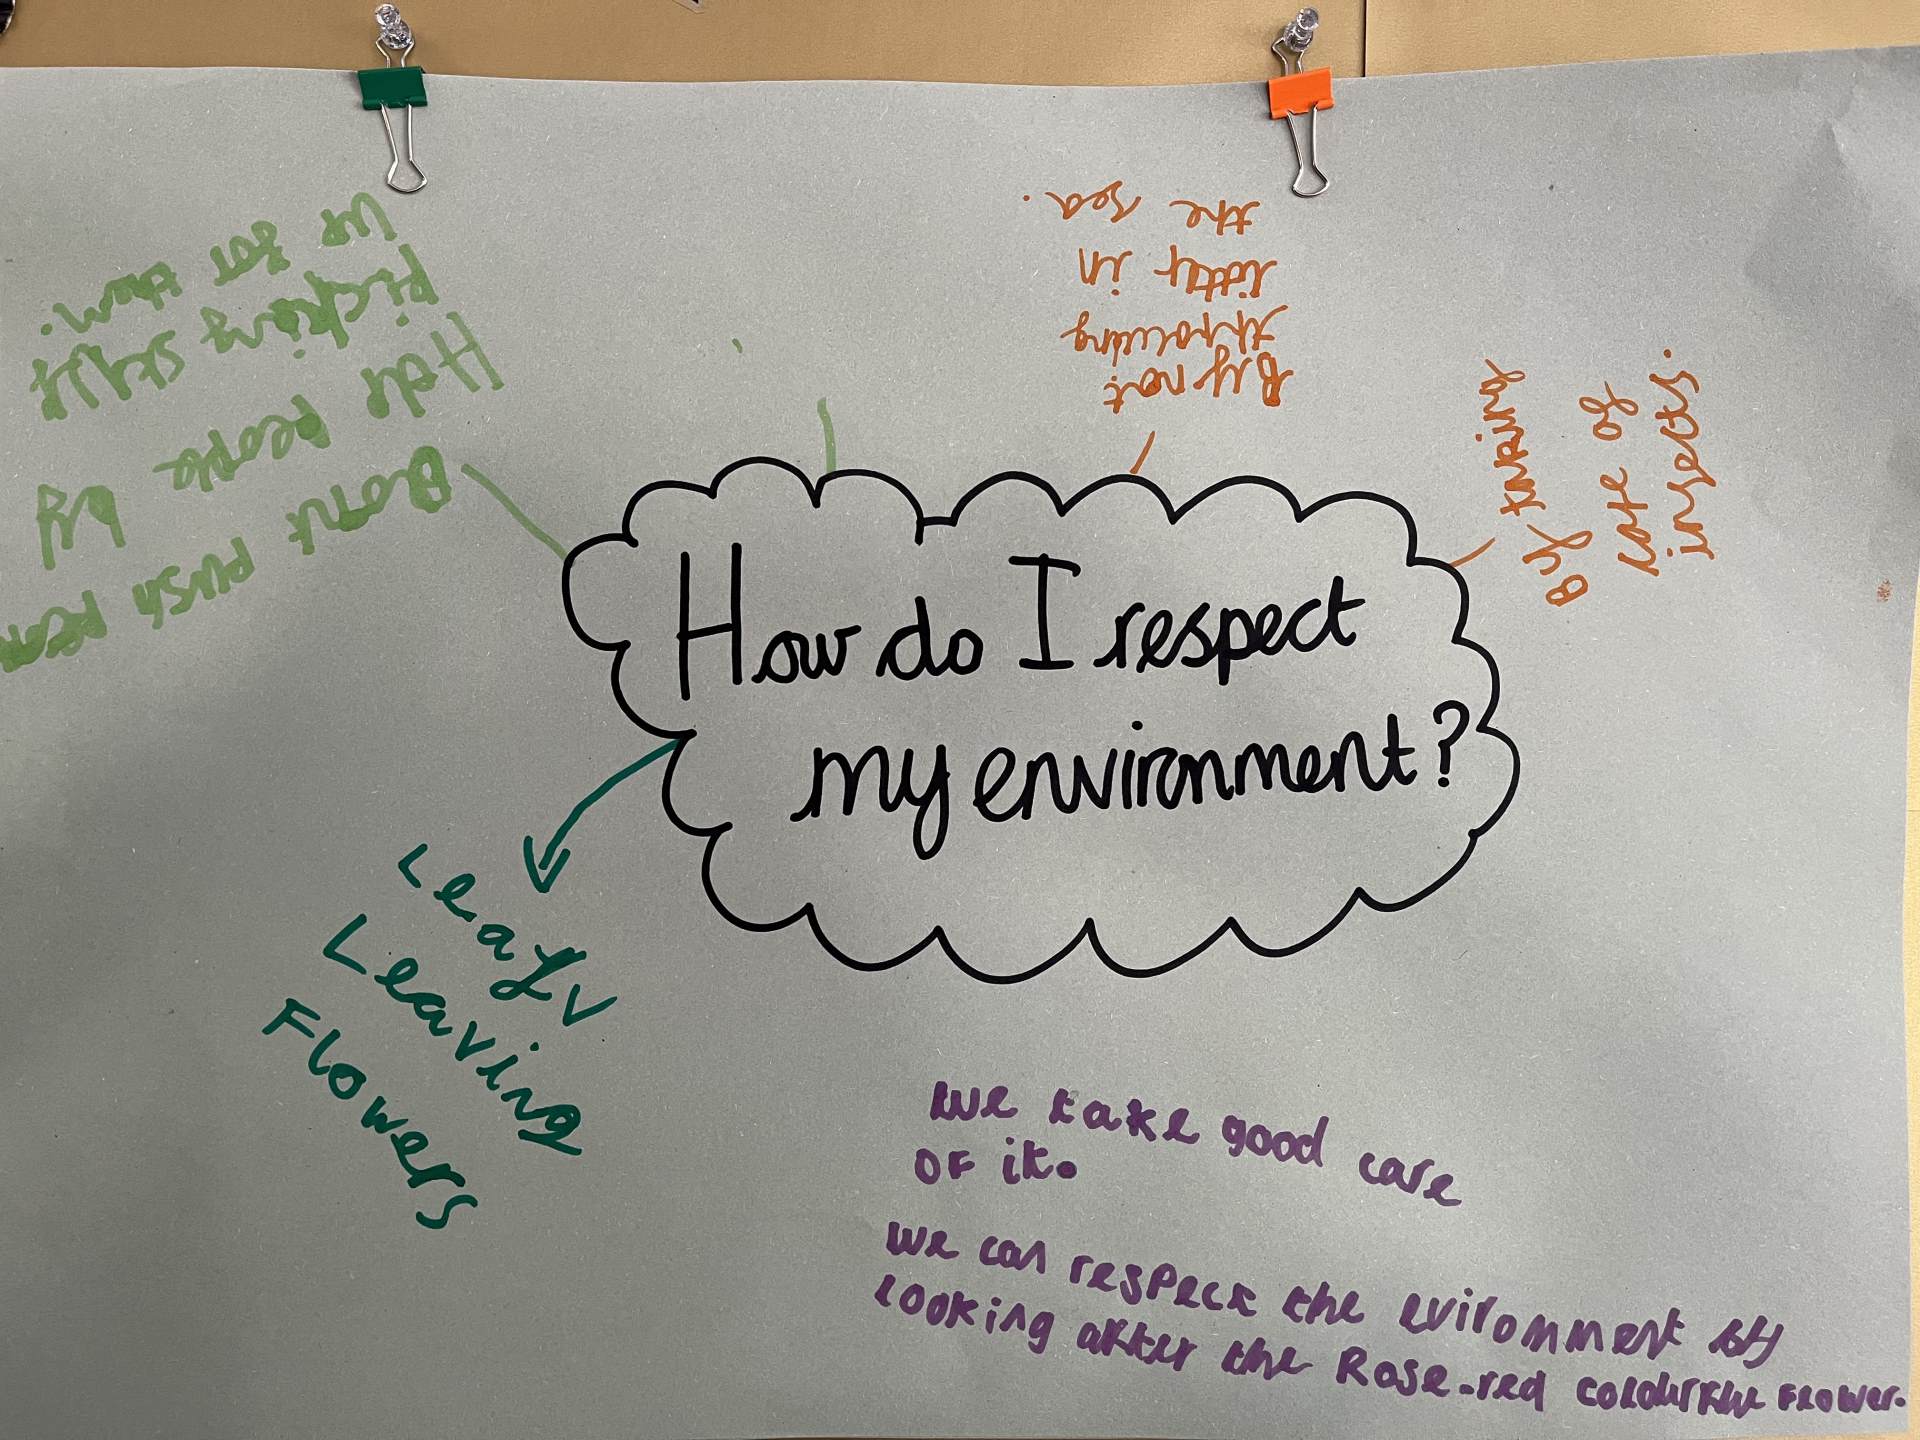 How do I respect
my environment?
Dont push
Help people by
picking stuff
up for them.
By not
throwing
litter in
the sea.
By taking
care of
insects.
Leafv
Leaving
Flowers
we take good care
of it.
we can respect the evironment by
looking after the Rose-red colourful flower.